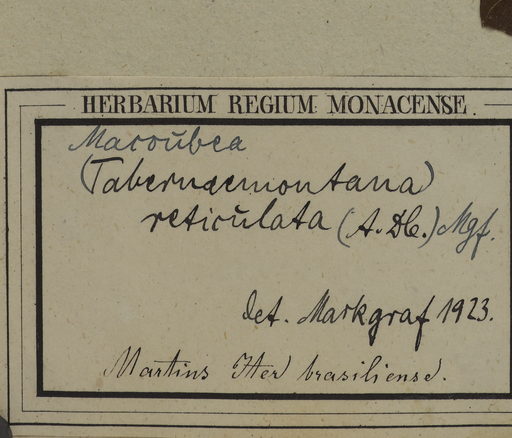 HERBARIUM REGIUM MONACENSE.
Macoubea
(Tabernaemontana)
reticulata (A. DC.) Mgf.
det. Markgraf 1923.
Martius Iter brasiliense.